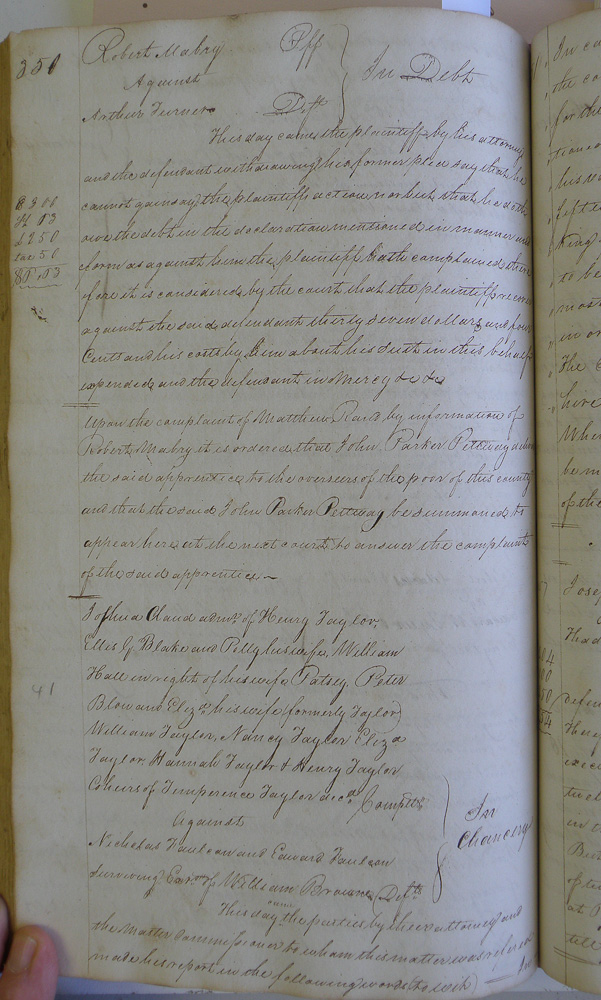 350
Robert Mabry Plff
Against In Debt
Arthur Turner Deft
This day came the plaintiff by his attorney
and the defendant withdrawing his former plea say that he
cannot gainsay the plaintiffs action nor but that he doth
owe the debt in the declaration mentioned in manner and
form as against him the plaintiff hath complained there
fore it is considered by the court that the plaintiff recover
against the said defendant thirty seven dollars and four
Cents and his costs by him about his suit in this behalf
expended and the defendant in Mercy &c &c
upon the complaint of Matthew by information of
Robert Mabry it is ordered that John Parker Pettway deliver
the said apprentice to the overseers of the poor of this county
and that the said John Parker Pettway be summoned to
appear here at the next court to answer the complaint
of the said apprentice
Joshua Claud admr. of Henry Taylor,
Ellis G. Blake and Polly his wife, William
Hall in right of his wife Patsey, Peter
41
Blow and Eliza. his wife (formerly Taylor)
William Taylor, Nancy Taylor Eliza
Taylor, Hannah Taylor & Henry Taylor
Coheirs of Temperence Taylor decd. Complts
Against In Chancery
Nicholas Faulcon and Edward Faulcon
surviving Exors of William Browne Defts
This day came the parties by their attorney and
the Master Commissioner to whom this matter was referred
made his report in the following words (to wit)